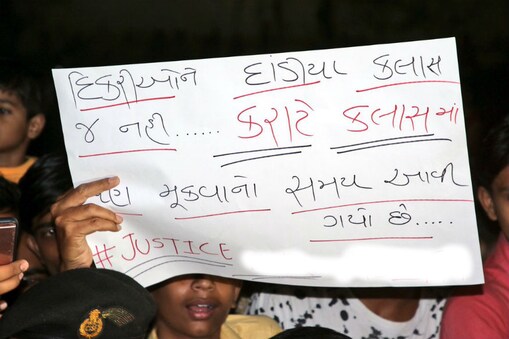 દિકરીઓને દાંડીયા કલાસ
જ નહી...... કરાટે કલાસ માં
પણ મૂકવાનો સમય આવી
ગયો છે.....
#JUSTICE